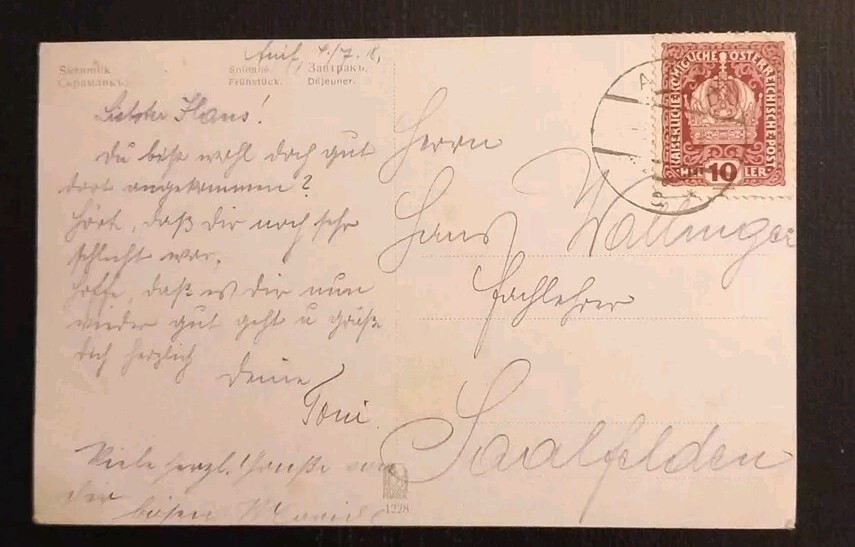 Anif 4./7. 18.
Sieminik Śniadanie. Завтракъ.
Frühstück. Déjeuner.
Liebster Hans!
Du bist wohl doch gut
dort angekommen?
Hört, daß dir noch sehr
schlecht war.
Hoffe, daß es dir nun
wieder gut geht u grüße
dich herzlich
Deine
Toni.
Viele herzl. Grüße von
der bösen
1228
KAISERLICHE KÖNIGLICHE ÖSTERREICHISCHE POST
HELLER 10
A
Herrn
Hans Wallinger
Fachlehrer
Saalfelden